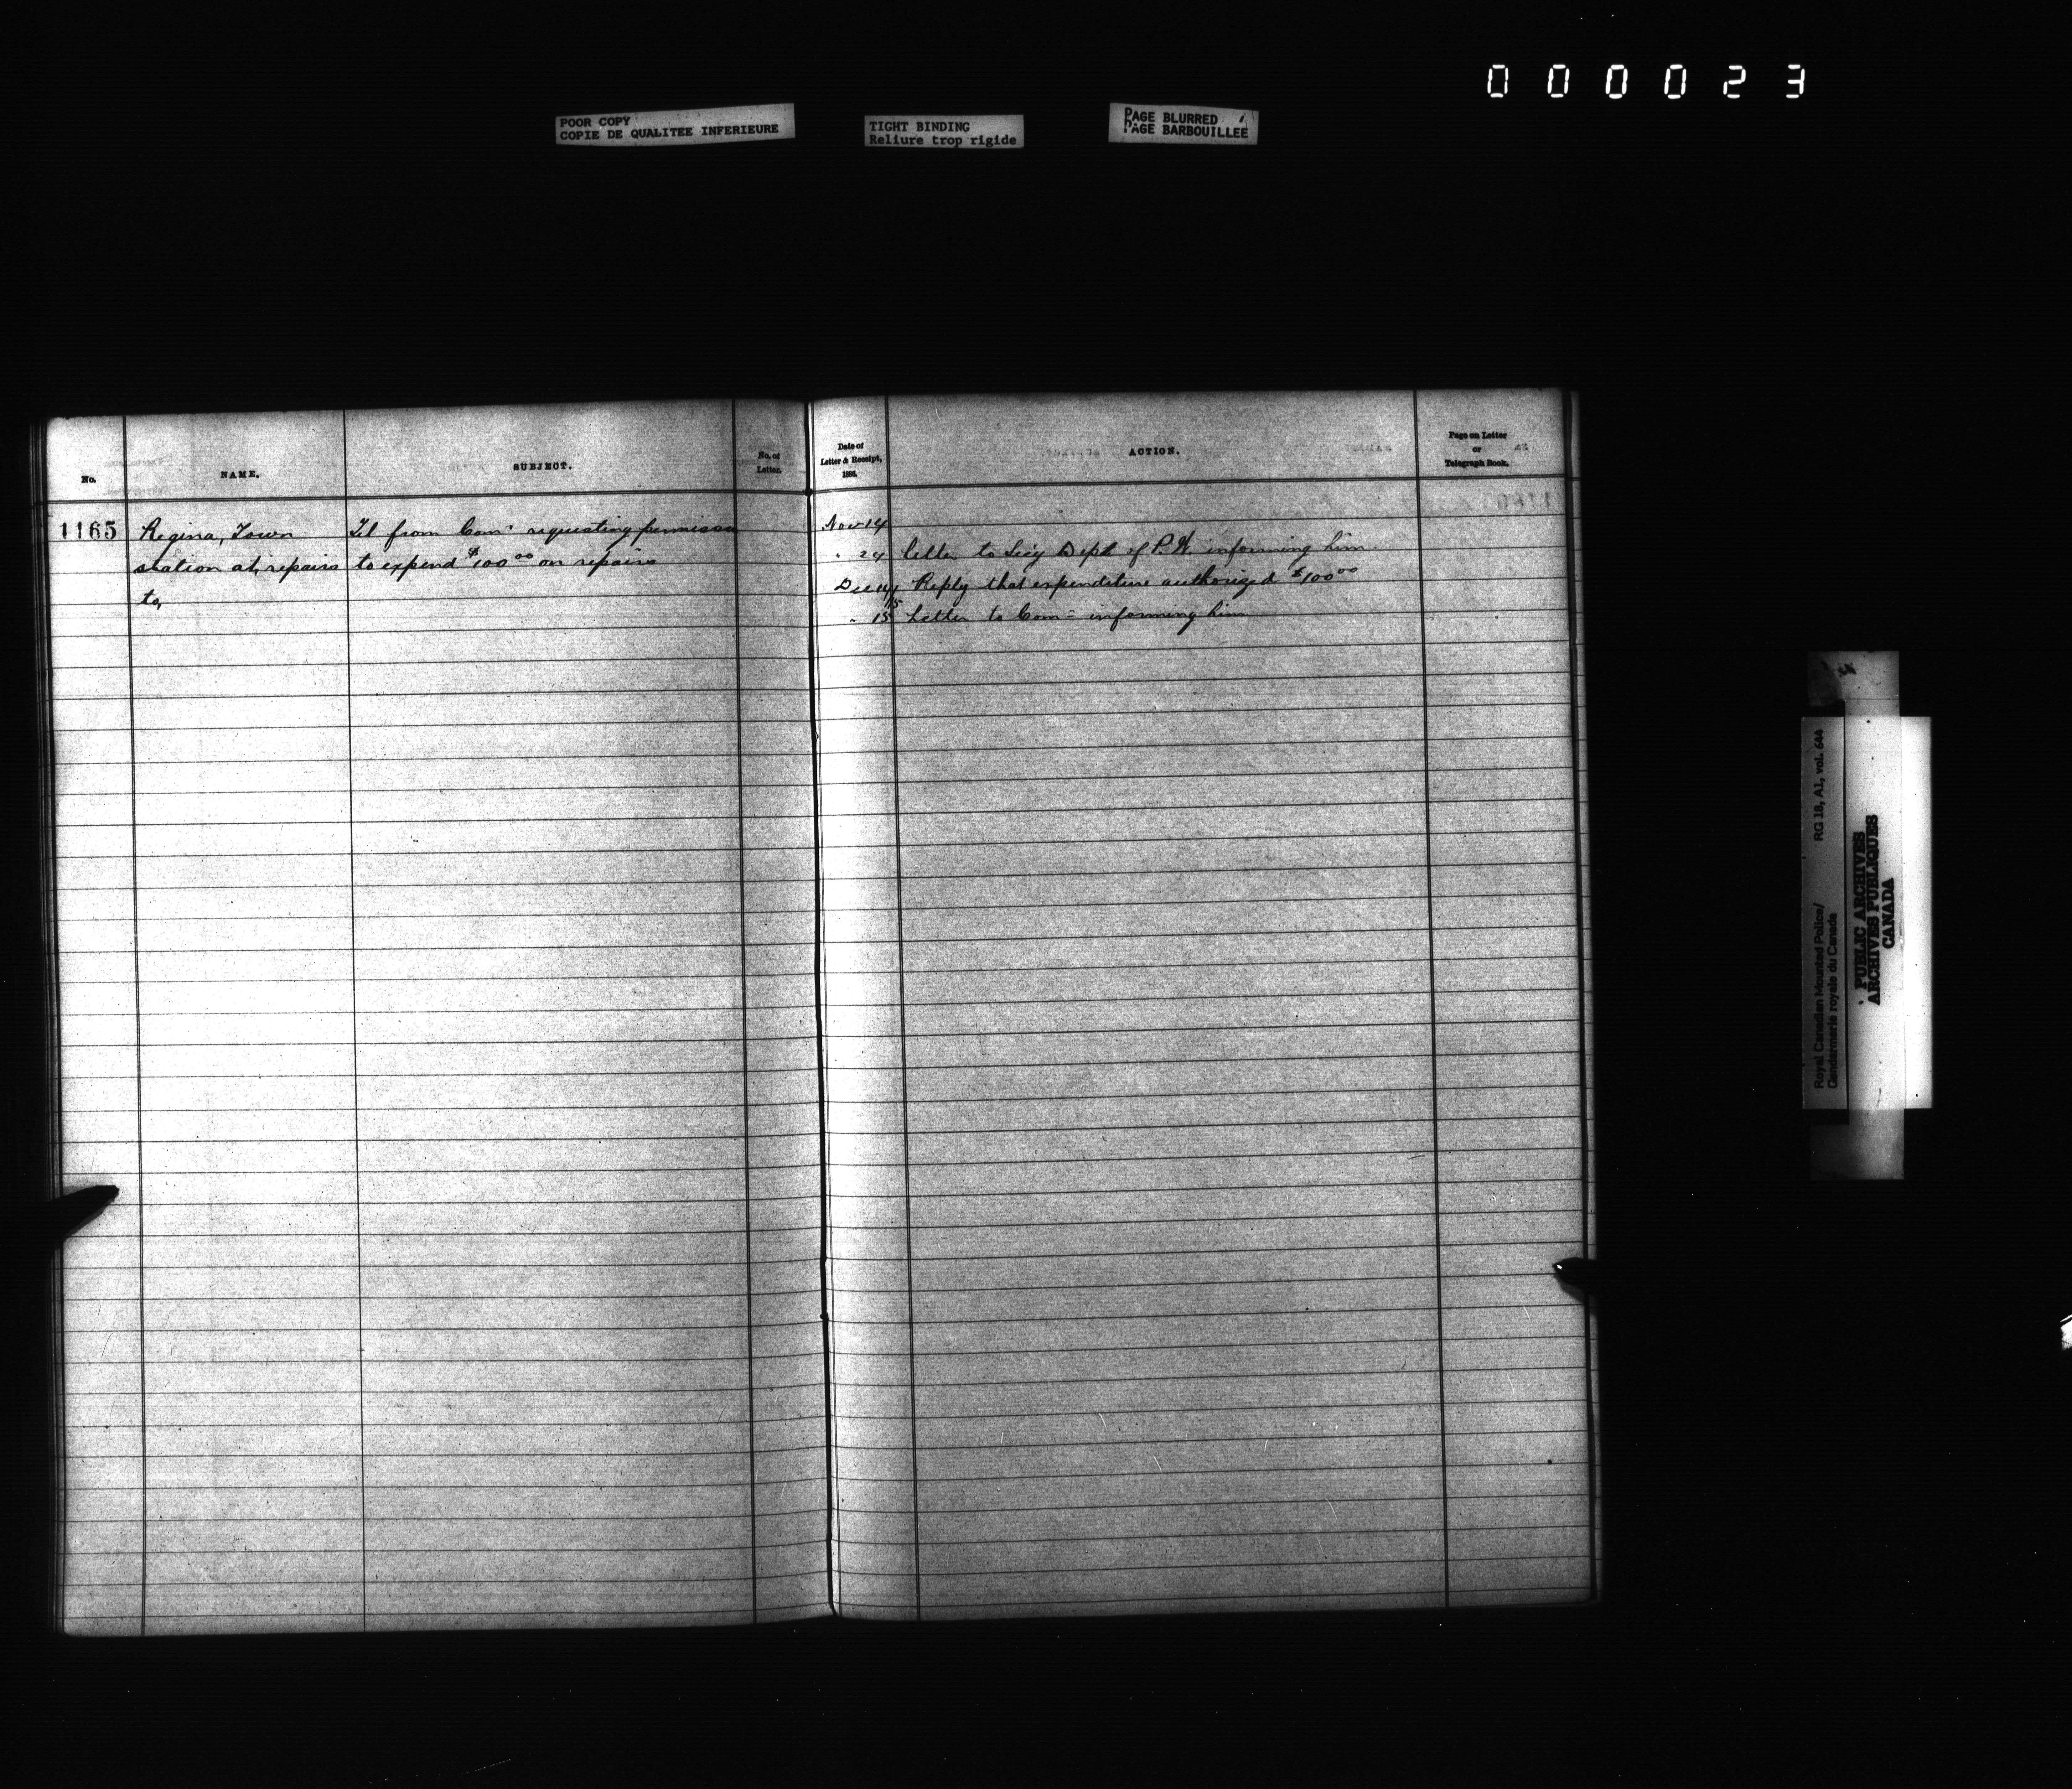 000023
POOR COPY
COPIE DE QUALITEE INFERIEURE
TIGHT BINDING
Reliure trop rigide
PAGE BLURRED
PAGE BARBOUILLEE
No.
NAME.
SUBJECT.
No. of
Letter.
Date of
Letter & Receipt,
1886.
ACTION.
Page on Letter
or
Telegraph Book.
1165
Regina, Town
station at, repairs
to,
Tel from Com' requesting permission
to expend $100 00 on repairs
Nov 14
" 24 Letter to Sec'y Dept of P.W. informing him
Dec 14/15 Reply that expenditure authorized $100 00
" 15 Letter to Com= informing him
Royal Canadian Mounted Police/ RG 18, A1, vol. 644
Gendarmerie royale du Canada
PUBLIC ARCHIVES
ARCHIVES PUBLIQUES
CANADA